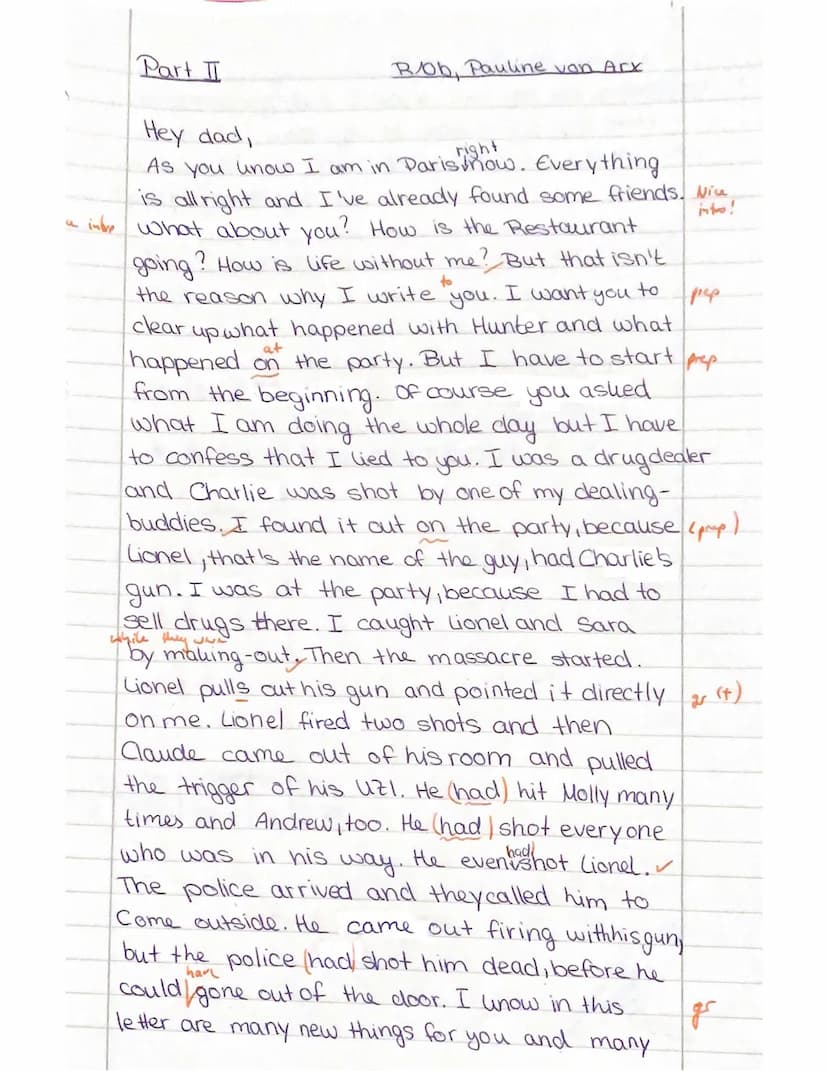 Part II R10b, Pauline von Arx
Hey dad,
right
As you know I am in Paris now. Everything
is allright and I've already found some friends. Nice
intro!
What about you? How is the Restaurant
going? How is life without me? But that isn't
to
the reason why I write you. I want you to prep
clear up what happened with Hunter and what
at
happened on the party. But I have to start prep
from the beginning. Of course you asked
what I am doing the whole day but I have
to confess that I lied to you. I was a drugdealer
and Charlie was shot by one of my dealing-
buddies. I found it out on the party, because (prep)
Lionel, that's the name of the guy, had Charlie's
gun. I was at the party, because I had to
sell drugs there. I caught Lionel and Sara
while they were
by making-out. Then the massacre started.
Lionel pulls out his gun and pointed it directly gr (t)
on me. Lionel fired two shots and then
Claude came out of his room and pulled
the trigger of his UZI. He (had) hit Molly many
times and Andrew, too. He (had) shot everyone
had
who was in his way. He even shot Lionel. ✓
The police arrived and they called him to
Come outside. He came out firing with his gun,
but the police (had) shot him dead, before he
have
could gone out of the door. I know in this gr
letter are many new things for you and many